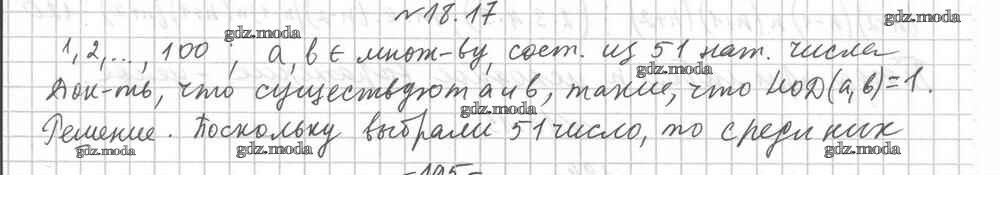 №18.17
1, 2, ..., 100 ; a, b ∈ множ-ву, сост. из 51 нат. числа
Док-ть, что существуют a и b, такие, что НОД(a, b)=1.
Решение. Поскольку выбрали 51 число, то среди них
gdz.moda
gdz.moda
gdz.moda
gdz.moda
gdz.moda
gdz.moda
gdz.moda